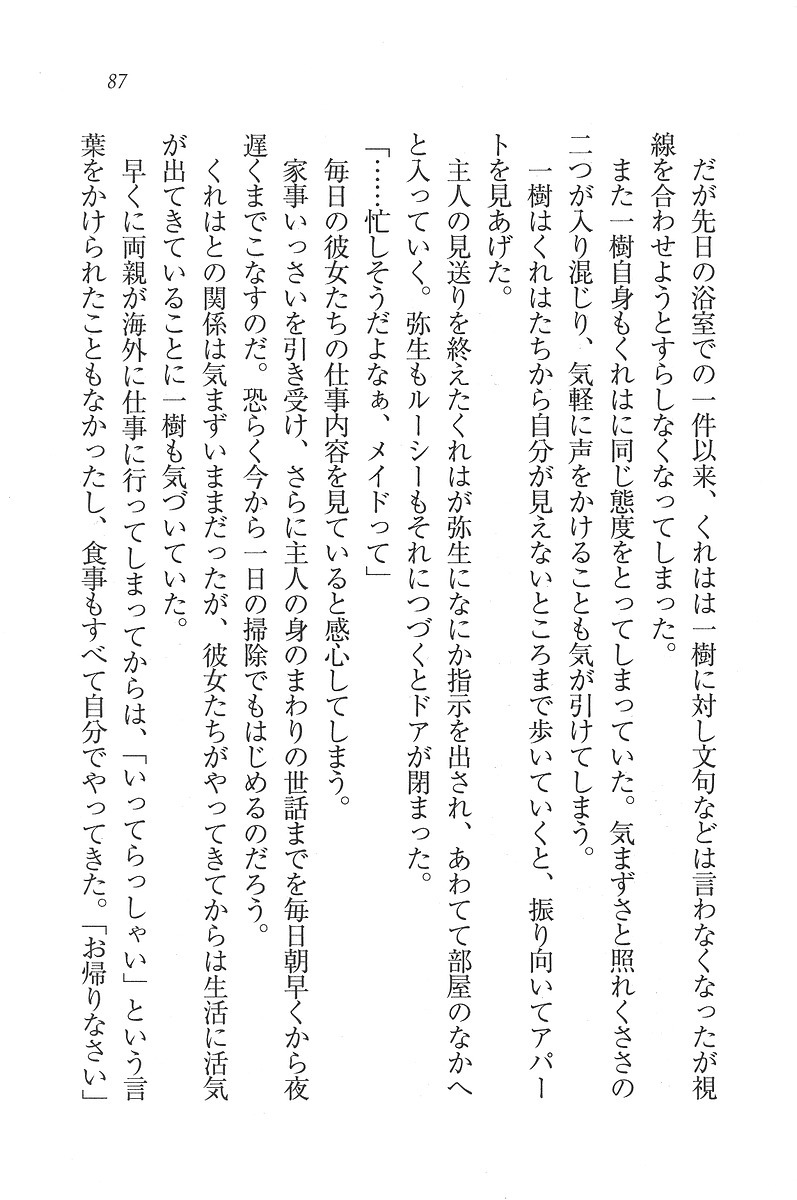 87
だが先日の浴室での一件以来、くれはは一樹に対し文句などは言わなくなったが視
線を合わせようとすらしなくなってしまった。
また一樹自身もくれはに同じ態度をとってしまっていた。気まずさと照れくささの
二つが入り混じり、気軽に声をかけることも気が引けてしまう。
一樹はくれはたちから自分が見えないところまで歩いていくと、振り向いてアパー
トを見あげた。
主人の見送りを終えたくれはが弥生になにか指示を出され、あわてて部屋のなかへ
と入っていく。弥生もルーシーもそれにつづくとドアが閉まった。
「……忙しそうだよなぁ、メイドって」
毎日の彼女たちの仕事内容を見ていると感心してしまう。
家事いっさいを引き受け、さらに主人の身のまわりの世話までを毎日朝早くから夜
遅くまでこなすのだ。恐らく今から一日の掃除でもはじめるのだろう。
くれはとの関係は気まずいままだったが、彼女たちがやってきてからは生活に活気
が出てきていることに一樹も気づいていた。
早くに両親が海外に仕事に行ってしまってからは、「いってらっしゃい」という言
葉をかけられたこともなかったし、食事もすべて自分でやってきた。「お帰りなさい」